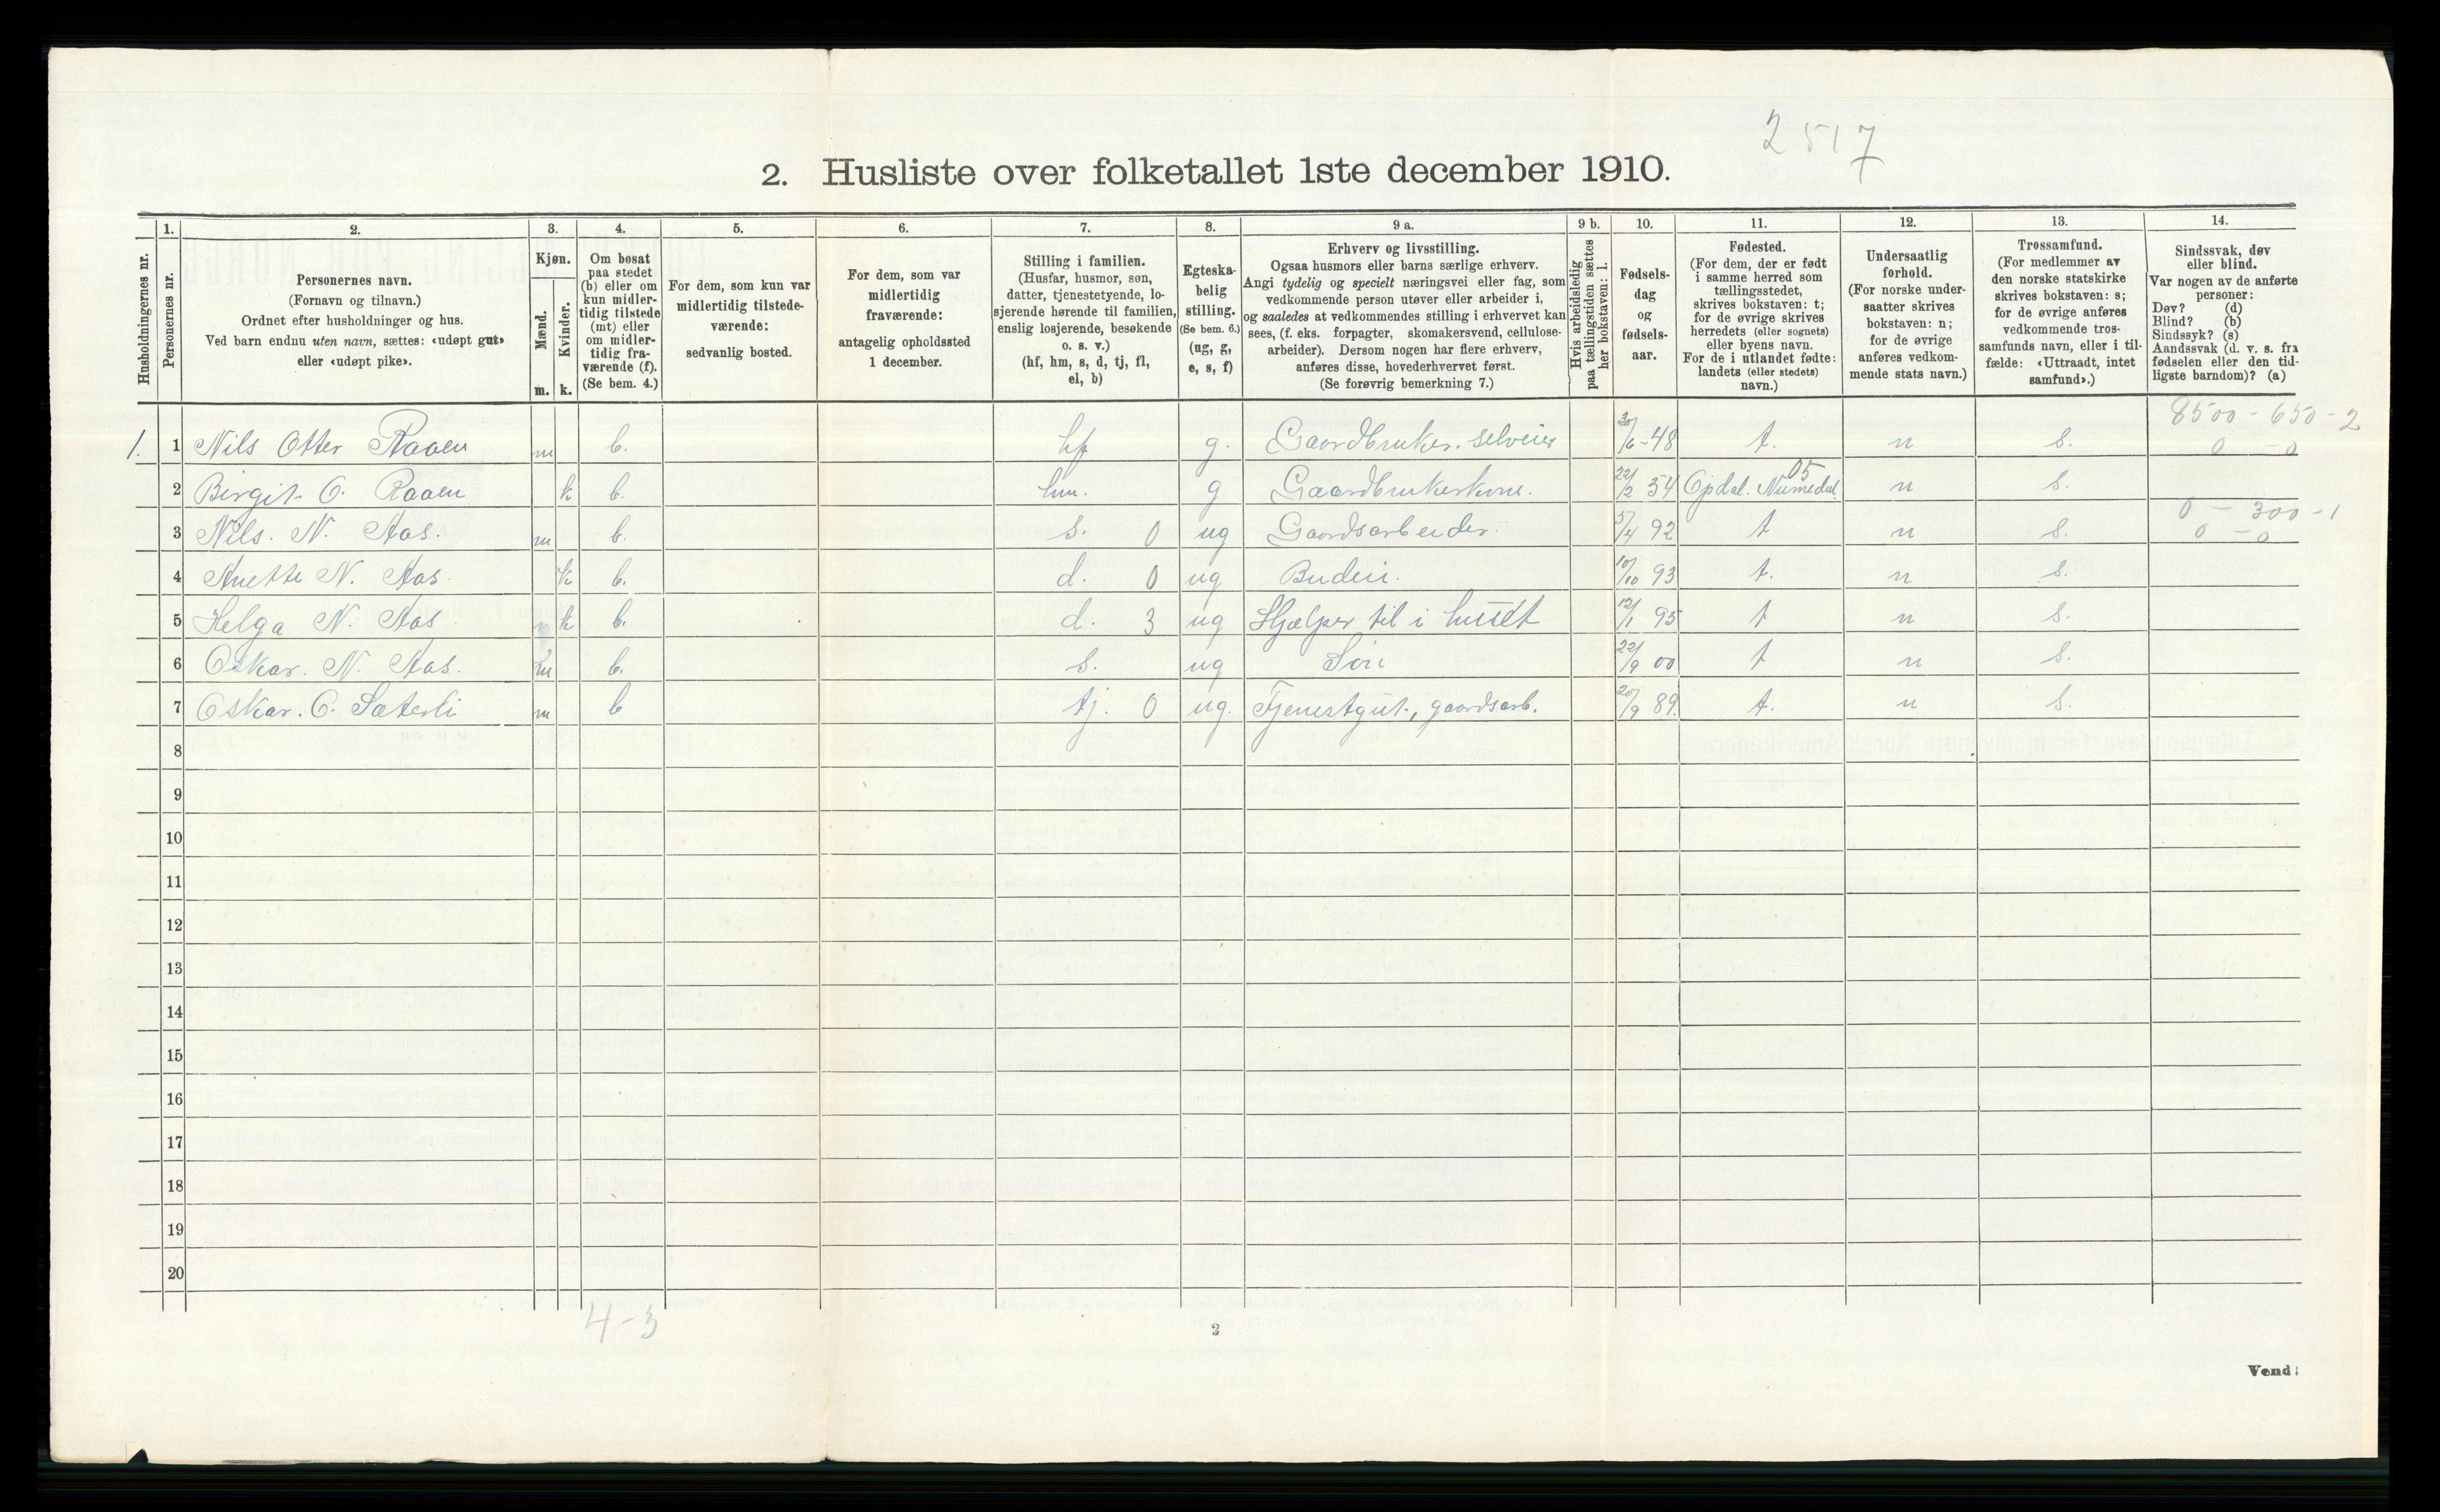 2517
2. Husliste over folketallet 1ste december 1910.
Husholdningernes nr.
1. Personernes nr.
2. Personernes navn. (Fornavn og tilnavn.) Ordnet efter husholdninger og hus. Ved barn endnu uten navn, sættes: «udøpt gut» eller «udøpt pike».
3. Kjøn. Mænd. m. Kvinder. k.
4. Om bosat paa stedet (b) eller om kun midlertidig tilstede (mt) eller om midlertidig fraværende (f). (Se bem. 4.)
5. For dem, som kun var midlertidig tilstedeværende: sedvanlig bosted.
6. For dem, som var midlertidig fraværende: antagelig opholdssted 1 december.
7. Stilling i familien. (Husfar, husmor, søn, datter, tjenestetyende, losjerende hørende til familien, enslig losjerende, besøkende o. s. v.) (hf, hm, s, d, tj, fl, el, b)
8. Egteskabelig stilling. (Se bem. 6.) (ug, g, e, s, f)
9 a. Erhverv og livsstilling. Ogsaa husmors eller barns særlige erhverv. Angi tydelig og specielt næringsvei eller fag, som vedkommende person utøver eller arbeider i, og saaledes at vedkommendes stilling i erhvervet kan sees, (f. eks. forpagter, skomakersvend, cellulosearbeider). Dersom nogen har flere erhverv, anføres disse, hovederhvervet først. (Se forøvrig bemerkning 7.)
9 b. Hvis arbeidsledig paa tællingstiden sættes her bokstaven: l.
10. Fødselsdag og fødselsaar.
11. Fødested. (For dem, der er født i samme herred som tællingsstedet, skrives bokstaven: t; for de øvrige skrives herredets (eller sognets) eller byens navn. For de i utlandet fødte: landets (eller stedets) navn.)
12. Undersaatlig forhold. (For norske undersaatter skrives bokstaven: n; for de øvrige anføres vedkommende stats navn.)
13. Trossamfund. (For medlemmer av den norske statskirke skrives bokstaven: s; for de øvrige anføres vedkommende trossamfunds navn, eller i tilfælde: «Uttraadt, intet samfund».)
14. Sindssvak, døv eller blind. Var nogen av de anførte personer: Døv? (d) Blind? (b) Sindssyk? (s) Aandssvak (d. v. s. fra fødselen eller den tidligste barndom)? (a)
8500 - 650 - 2
1. 1 Nils Otter Raaen m b. hf g. Gaardbruker. selveier 30/6-48 t. n s. 0 - 0
2 Birgit O. Raaen k b. hm. g Gaardbrukerkone. 22/2 54 Opdal. Numedal 05 n s.
0 - 300 - 1
3 Nils. N. Aas. m b. s. 0 ug Gaardsarbeider. 5/4 92 t n s. 0 - 0
4 Anette N. Aas. k b. d. 0 ug Budeie. 10/10 93 t. n s.
5 Helga N. Aas k b. d. 3 ug Hjælper til i huset 12/1 95 t n s.
6 Oskar. N. Aas. m b. s. ug Søn 22/9 00 t n s.
7 Oskar. O. Sæterli m b tj. 0 ug. Tjenestgut., gaardsarb. 20/9 89. t. n s.
8
9
10
11
12
13
14
15
16
17
18
19
20
4-3
2
Vend!